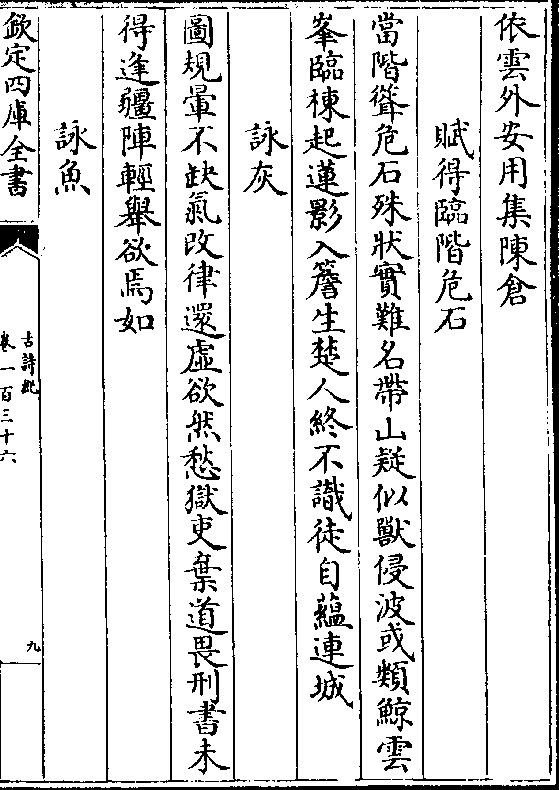 依雲外安用集陳倉
賦得臨階危石
當階聳危石殊狀實難名帶山疑似獸侵波或類鯨雲
峯臨棟起蓮影入簷生楚人終不識徒自蘊連城
詠灰
圖規暈不缺氣改律還虛欲然愁獄吏棄道畏刑書未
得逢疆陣輕舉欲焉如
詠魚
欽定四庫全書
古詩紀
卷一百三十六
九